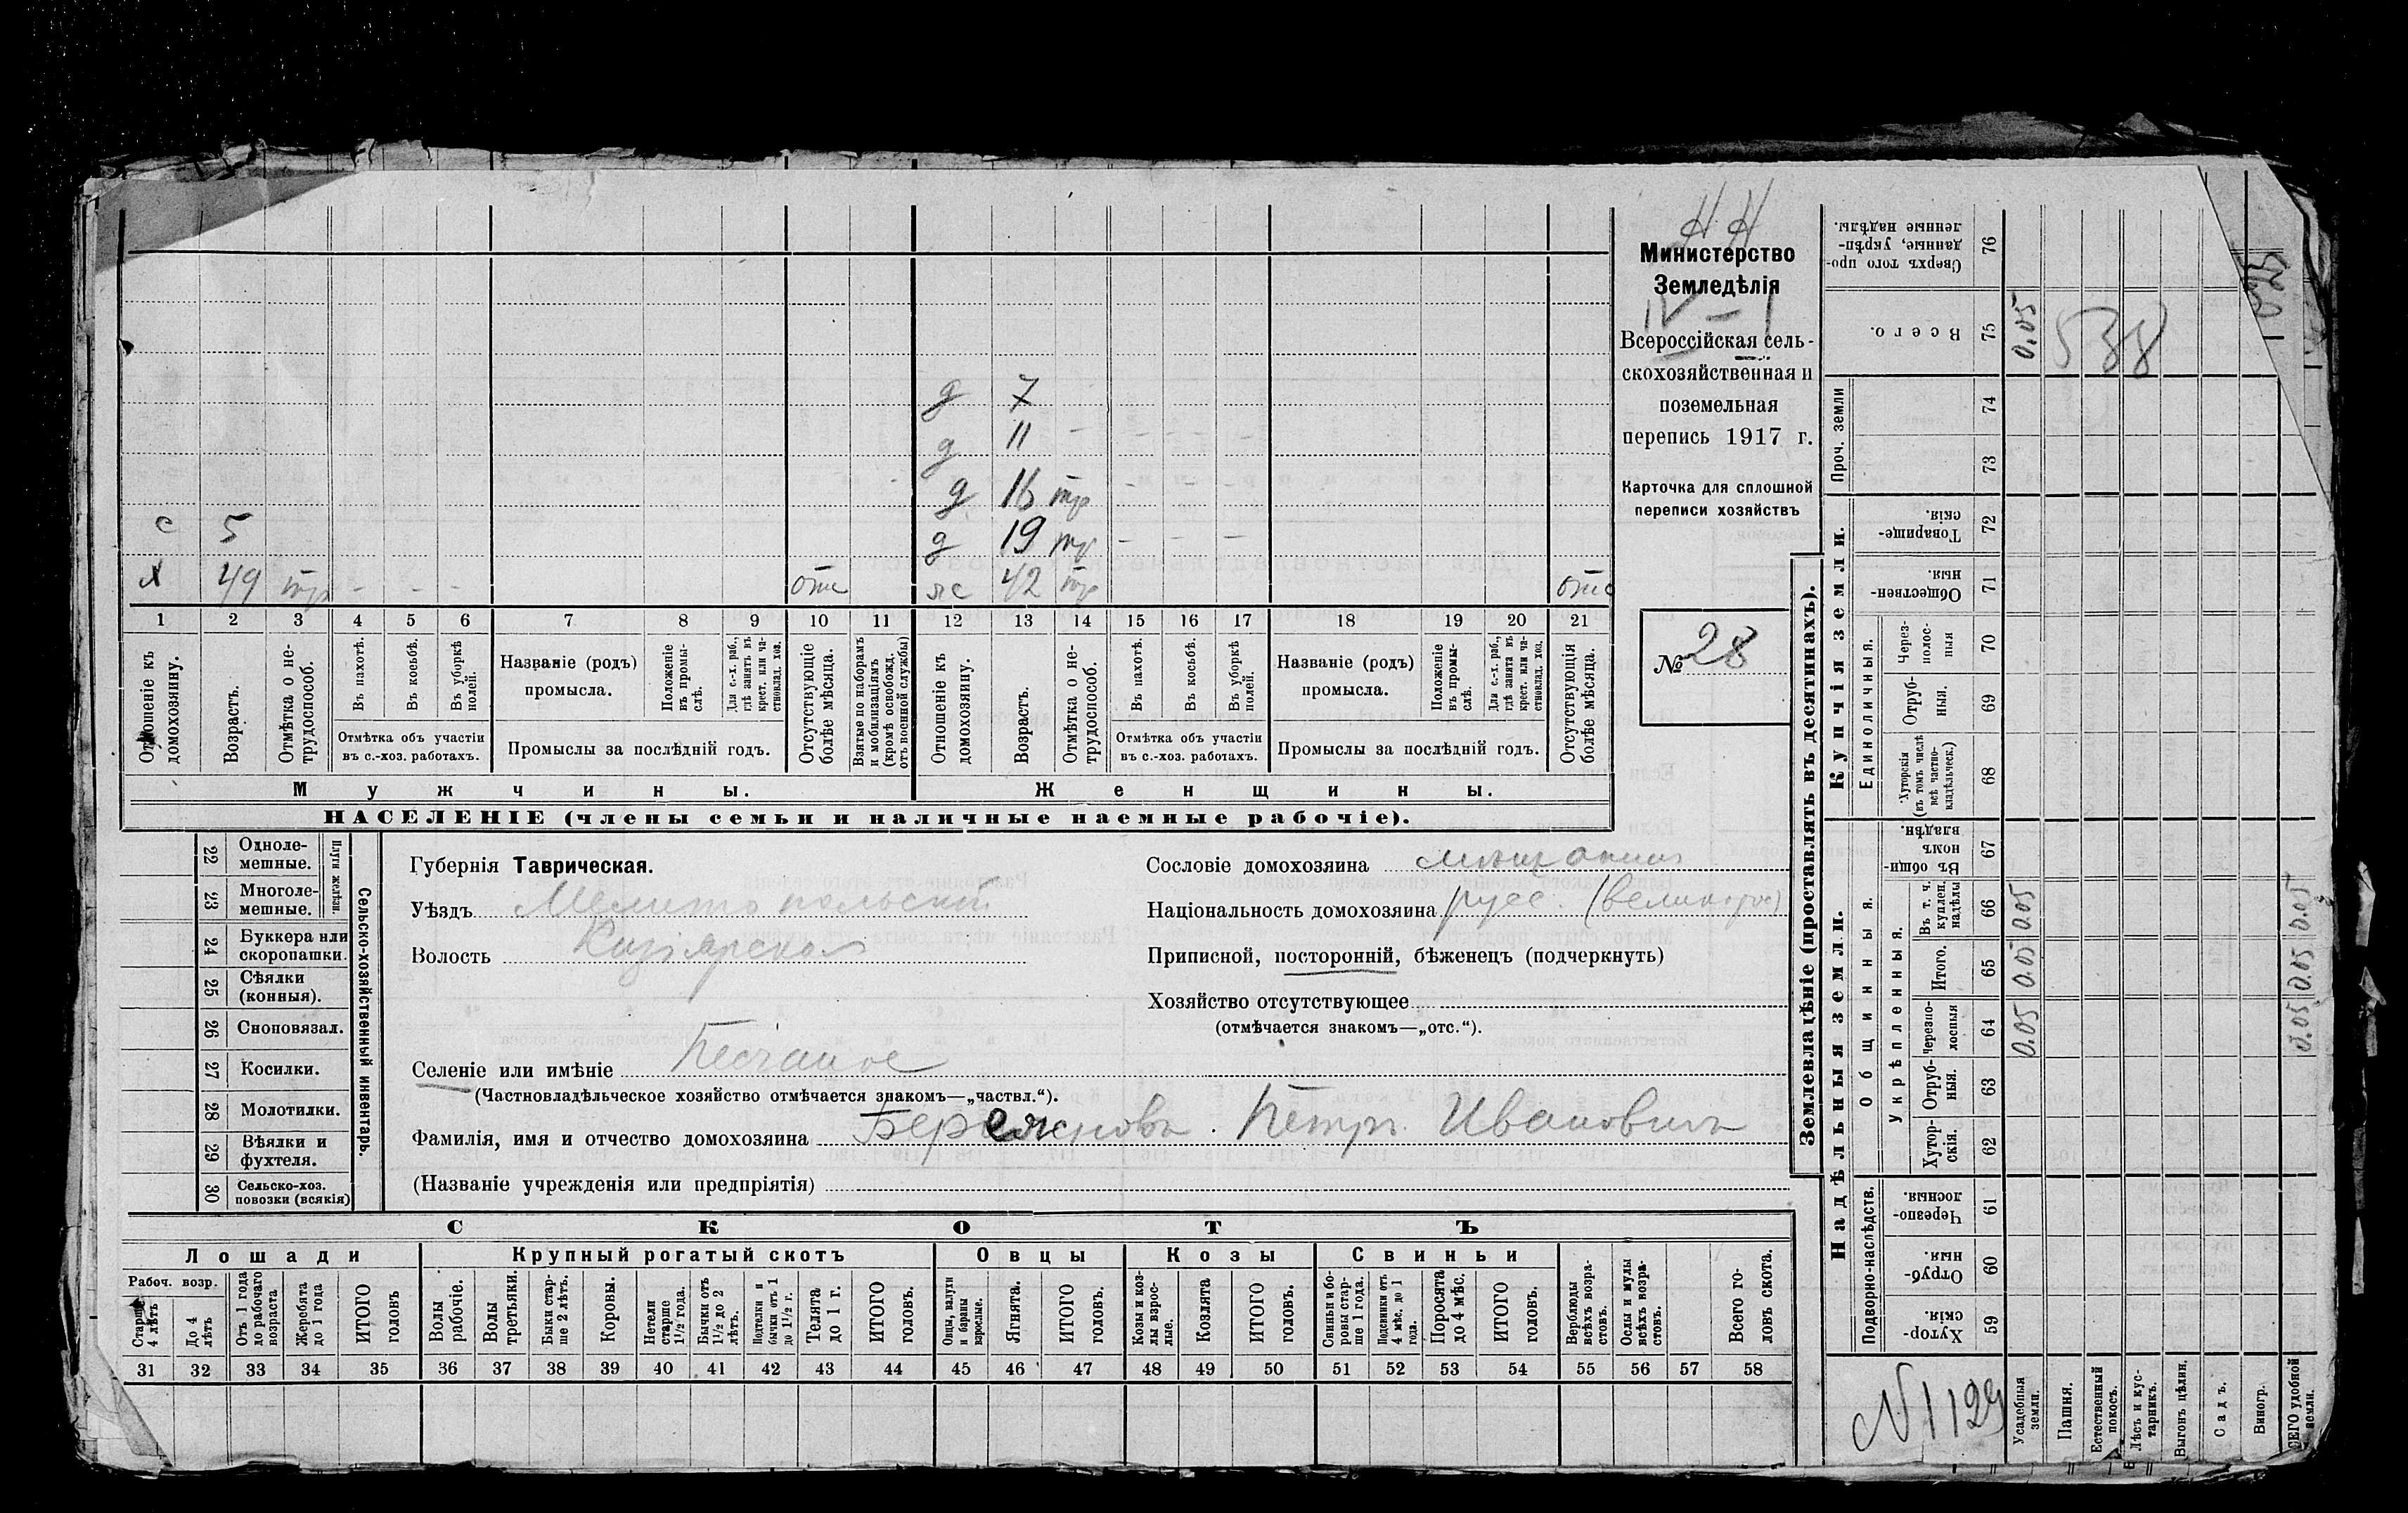 Н Н
Министерство
Земледѣлія
IV – I
Всероссійская сель-
скохозяйственная и
поземельная
перепись 1917 г.
Карточка для сплошной
переписи хозяйствъ
№ 28
д 7
д 11 - - - - -
д 16 тр - - -
с 5 д 19 тр - - -
х 49 тр - - - отс жс 42 тр отс
1 2 3 4 5 6 7 8 9 10 11 12 13 14 15 16 17 18 19 20 21
Отношеніе къ домохозяину.
Возрастъ.
Отмѣтка о не-трудоспособ.
Въ пахотѣ.
Въ косьбѣ.
Въ уборкѣ полей.
Отмѣтка объ участіи
въ с.-хоз. работахъ.
Названіе (родъ)
промысла.
Положеніе въ промы-слѣ.
Для с.-х. раб., гдѣ занятъ въ крест. или ча-стновлад. хоз.
Промыслы за послѣдній годъ.
Отсутствующіе болѣе мѣсяца.
Взятые по наборамъ и мобилизаціямъ (кромѣ освобожд. отъ военной службы)
Отношеніе къ домохозяину.
Возрастъ.
Отмѣтка о не-трудоспособ.
Въ пахотѣ.
Въ косьбѣ.
Въ уборкѣ полей.
Отмѣтка объ участіи
въ с.-хоз. работахъ.
Названіе (родъ)
промысла.
Положеніе въ промы-слѣ.
Для с.-х. раб., гдѣ занята въ крест. или ча-стновлад. хоз.
Промыслы за послѣдній годъ.
Отсутствующія болѣе мѣсяца.
Мужчины. Женщины.
НАСЕЛЕНІЕ (члены семьи и наличные наемные рабочіе).
22 Одноле-мешные.
23 Многоле-мешные.
Плуги желѣзн.
24 Буккера или скоропашки.
25 Сѣялки (конныя).
26 Сноповязал.
27 Косилки.
28 Молотилки.
29 Вѣялки и фухтеля.
30 Сельско-хоз. повозки (всякія)
Сельско-хозяйственный инвентарь.
Губернія Таврическая.
Уѣздъ Мелитопольскій
Волость
Селеніе или имѣніе Песчаное
(Частновладѣльческое хозяйство отмѣчается знакомъ—„частвл.“).
Фамилія, имя и отчество домохозяина Петръ Ивановичъ
(Названіе учрежденія или предпріятія)
Сословіе домохозяина мѣщанинъ
Національность домохозяина русс. (великорос)
Приписной, посторонній, бѣженецъ (подчеркнуть)
Хозяйство отсутствующее
(отмѣчается знакомъ—„отс.“).
СКОТЪ
Лошади Крупный рогатый скотъ Овцы Козы Свиньи
Рабоч. возр.
Старше 4 лѣтъ
До 4 лѣтъ
Отъ 1 года до рабочаго возраста
Жеребята до 1 года
ИТОГО головъ
Волы рабочіе.
Волы третьяки.
Быки стар-ше 2 лѣтъ.
Коровы.
Нетели старше 1½ года.
Бычки отъ 1½ до 2 лѣтъ.
Подтелки и бычки отъ 1 до 1½ г.
Телята до 1 г.
ИТОГО головъ.
Овцы, валухи и бараны взрослые.
Ягнята.
ИТОГО головъ.
Козы и коз-лы взрос-лые.
Козлята
ИТОГО головъ.
Свиньи и бо-ровы стар-ше 1 года.
Подсвинки отъ 4 мѣс. до 1 года.
Поросята до 4 мѣс.
ИТОГО головъ.
Верблюды всѣхъ возра-стовъ.
Ослы и мулы всѣхъ возра-стовъ.
Всего го-ловъ скота.
31 32 33 34 35 36 37 38 39 40 41 42 43 44 45 46 47 48 49 50 51 52 53 54 55 56 57 58
Землевладѣніе (проставлять въ десятинахъ).
Надѣльныя земли. Купчія земли.
Подворно-наслѣдств.
Общинныя.
Укрѣпленныя.
Единоличныя.
Проч. земли
Хутор-скія. 59
Отруб-ныя. 60
Черезпо-лосныя. 61
Хутор-скія. 62
Отруб-ныя. 63
Черезпо-лосныя 64 0.05
Итого. 65 0.05
Въ т. ч. куплен. надѣлы 66 0.05
Въ общи-номъ владѣн. 67
Хуторскія (въ томъ числѣ всѣ частно-владѣльческ.) 68
Отруб-ныя. 69
Через-полос-ныя 70
Обществен-ныя. 71
Товарище-скія. 72
73
74
Всего. 75 0.05
Сверхъ того про-данные, укрѣп-ленные надѣлы. 76
538
Усадебныя земли.
Пашня.
Естественный покосъ.
Лѣсъ и кус-тарникъ.
Выгонъ цѣлин.
Садъ.
Виногр.
СЕГО удобной земли.
0.05 0.05 0.05
N 1129